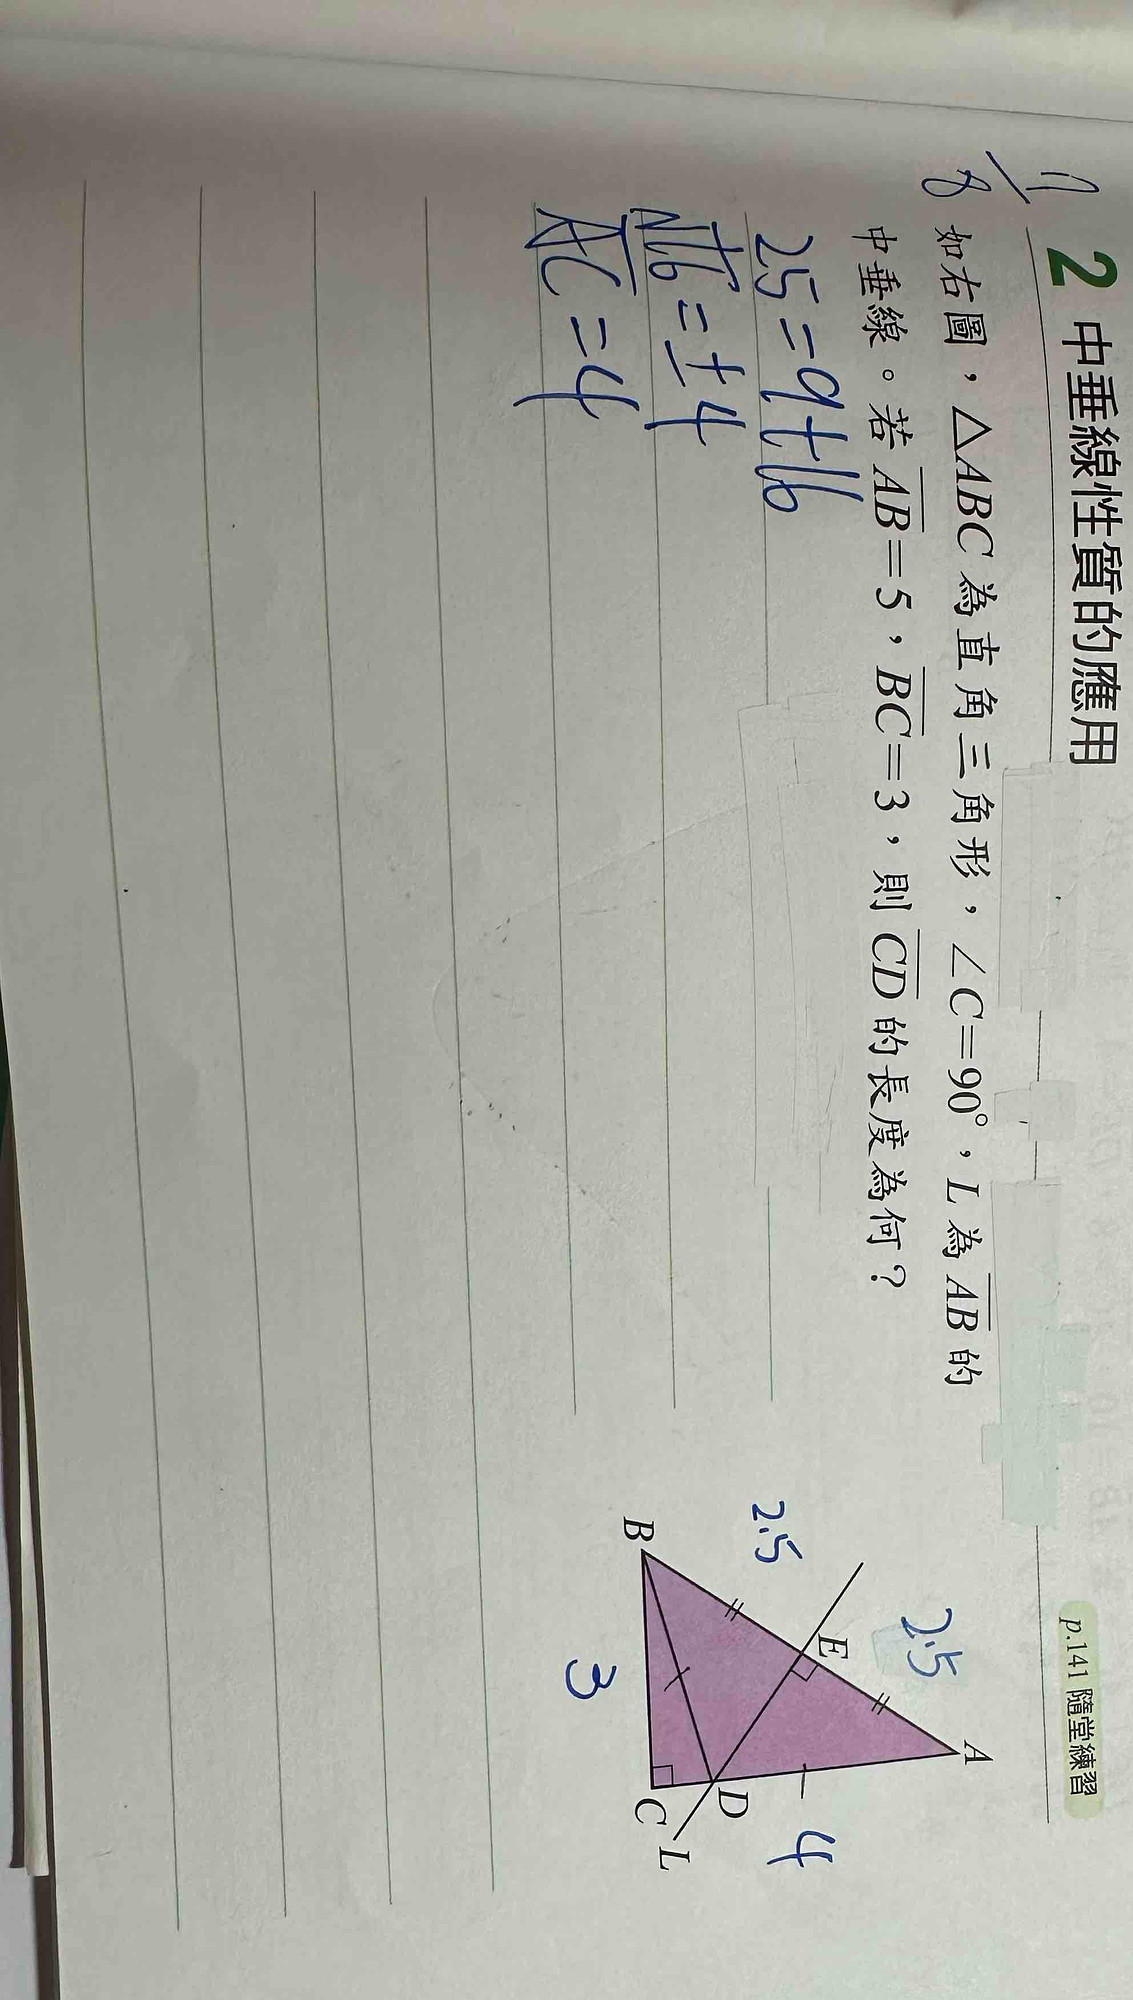 2 中垂線性質的應用
p.141 隨堂練習
如右圖，△ABC 為直角三角形，∠C=90°，L 為 AB 的
中垂線。若 AB=5，BC=3，則 CD 的長度為何？
25=9+16
√16=±4
AC=4
A
2.5
E
2.5
B
D
4
C
L
3